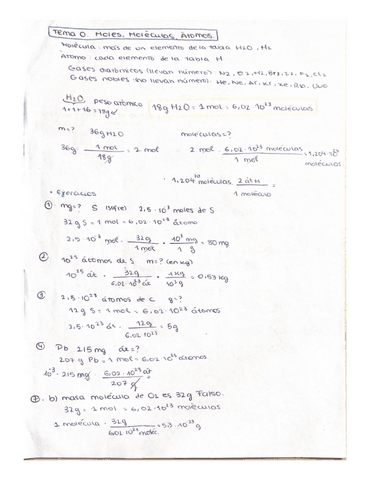 Tema 0. Moles, Moléculas, Átomos.
Molécula: más de un elemento de la tabla H2O, H2
Átomo: cada elemento de la tabla H
Gases diatómicos (llevan número): N2, O2, H2, Br2, I2, F2, Cl2
Gases nobles (no llevan número): He, Ne, Ar, Kr, Xe, Rn, Uuo
H2O peso atómico 18g H2O = 1 mol = 6,02·10²³ moléculas
1+1+16 = 18g
m=? 36g H2O moléculas=?
36g · 1 mol / 18g = 2 mol 2 mol · 6,02·10²³ moléculas / 1 mol = 1,204·10²⁴ moléculas
1,204·10²⁴ moléculas · 2 át H / 1 molécula =
• Ejercicios
① mg=? S 2,5·10⁻³ moles de S
32g S = 1 mol = 6,02·10²³ átomos
2,5·10⁻³ mol · 32g / 1 mol · 10³ mg / 1 g = 80mg
② 10²⁵ átomos de S m=? (en kg)
10²⁵ át · 32g / 6,02·10²³ át · 1 kg / 10³ g = 0,53 kg
③ 2,5·10²³ átomos de C g=?
12g S = 1 mol = 6,02·10²³ átomos
2,5·10²³ át · 12g / 6,02·10²³ át = 5g
④ Pb 215 mg át=?
207 g Pb = 1 mol = 6,02·10²³ átomos
10⁻³ · 215 mg · 6,02·10²³ át / 207 g
⑦ b) masa molécula de O2 es 32g Falso.
32g = 1 mol = 6,02·10²³ moléculas
1 molécula · 32g / 6,02·10²³ moléc